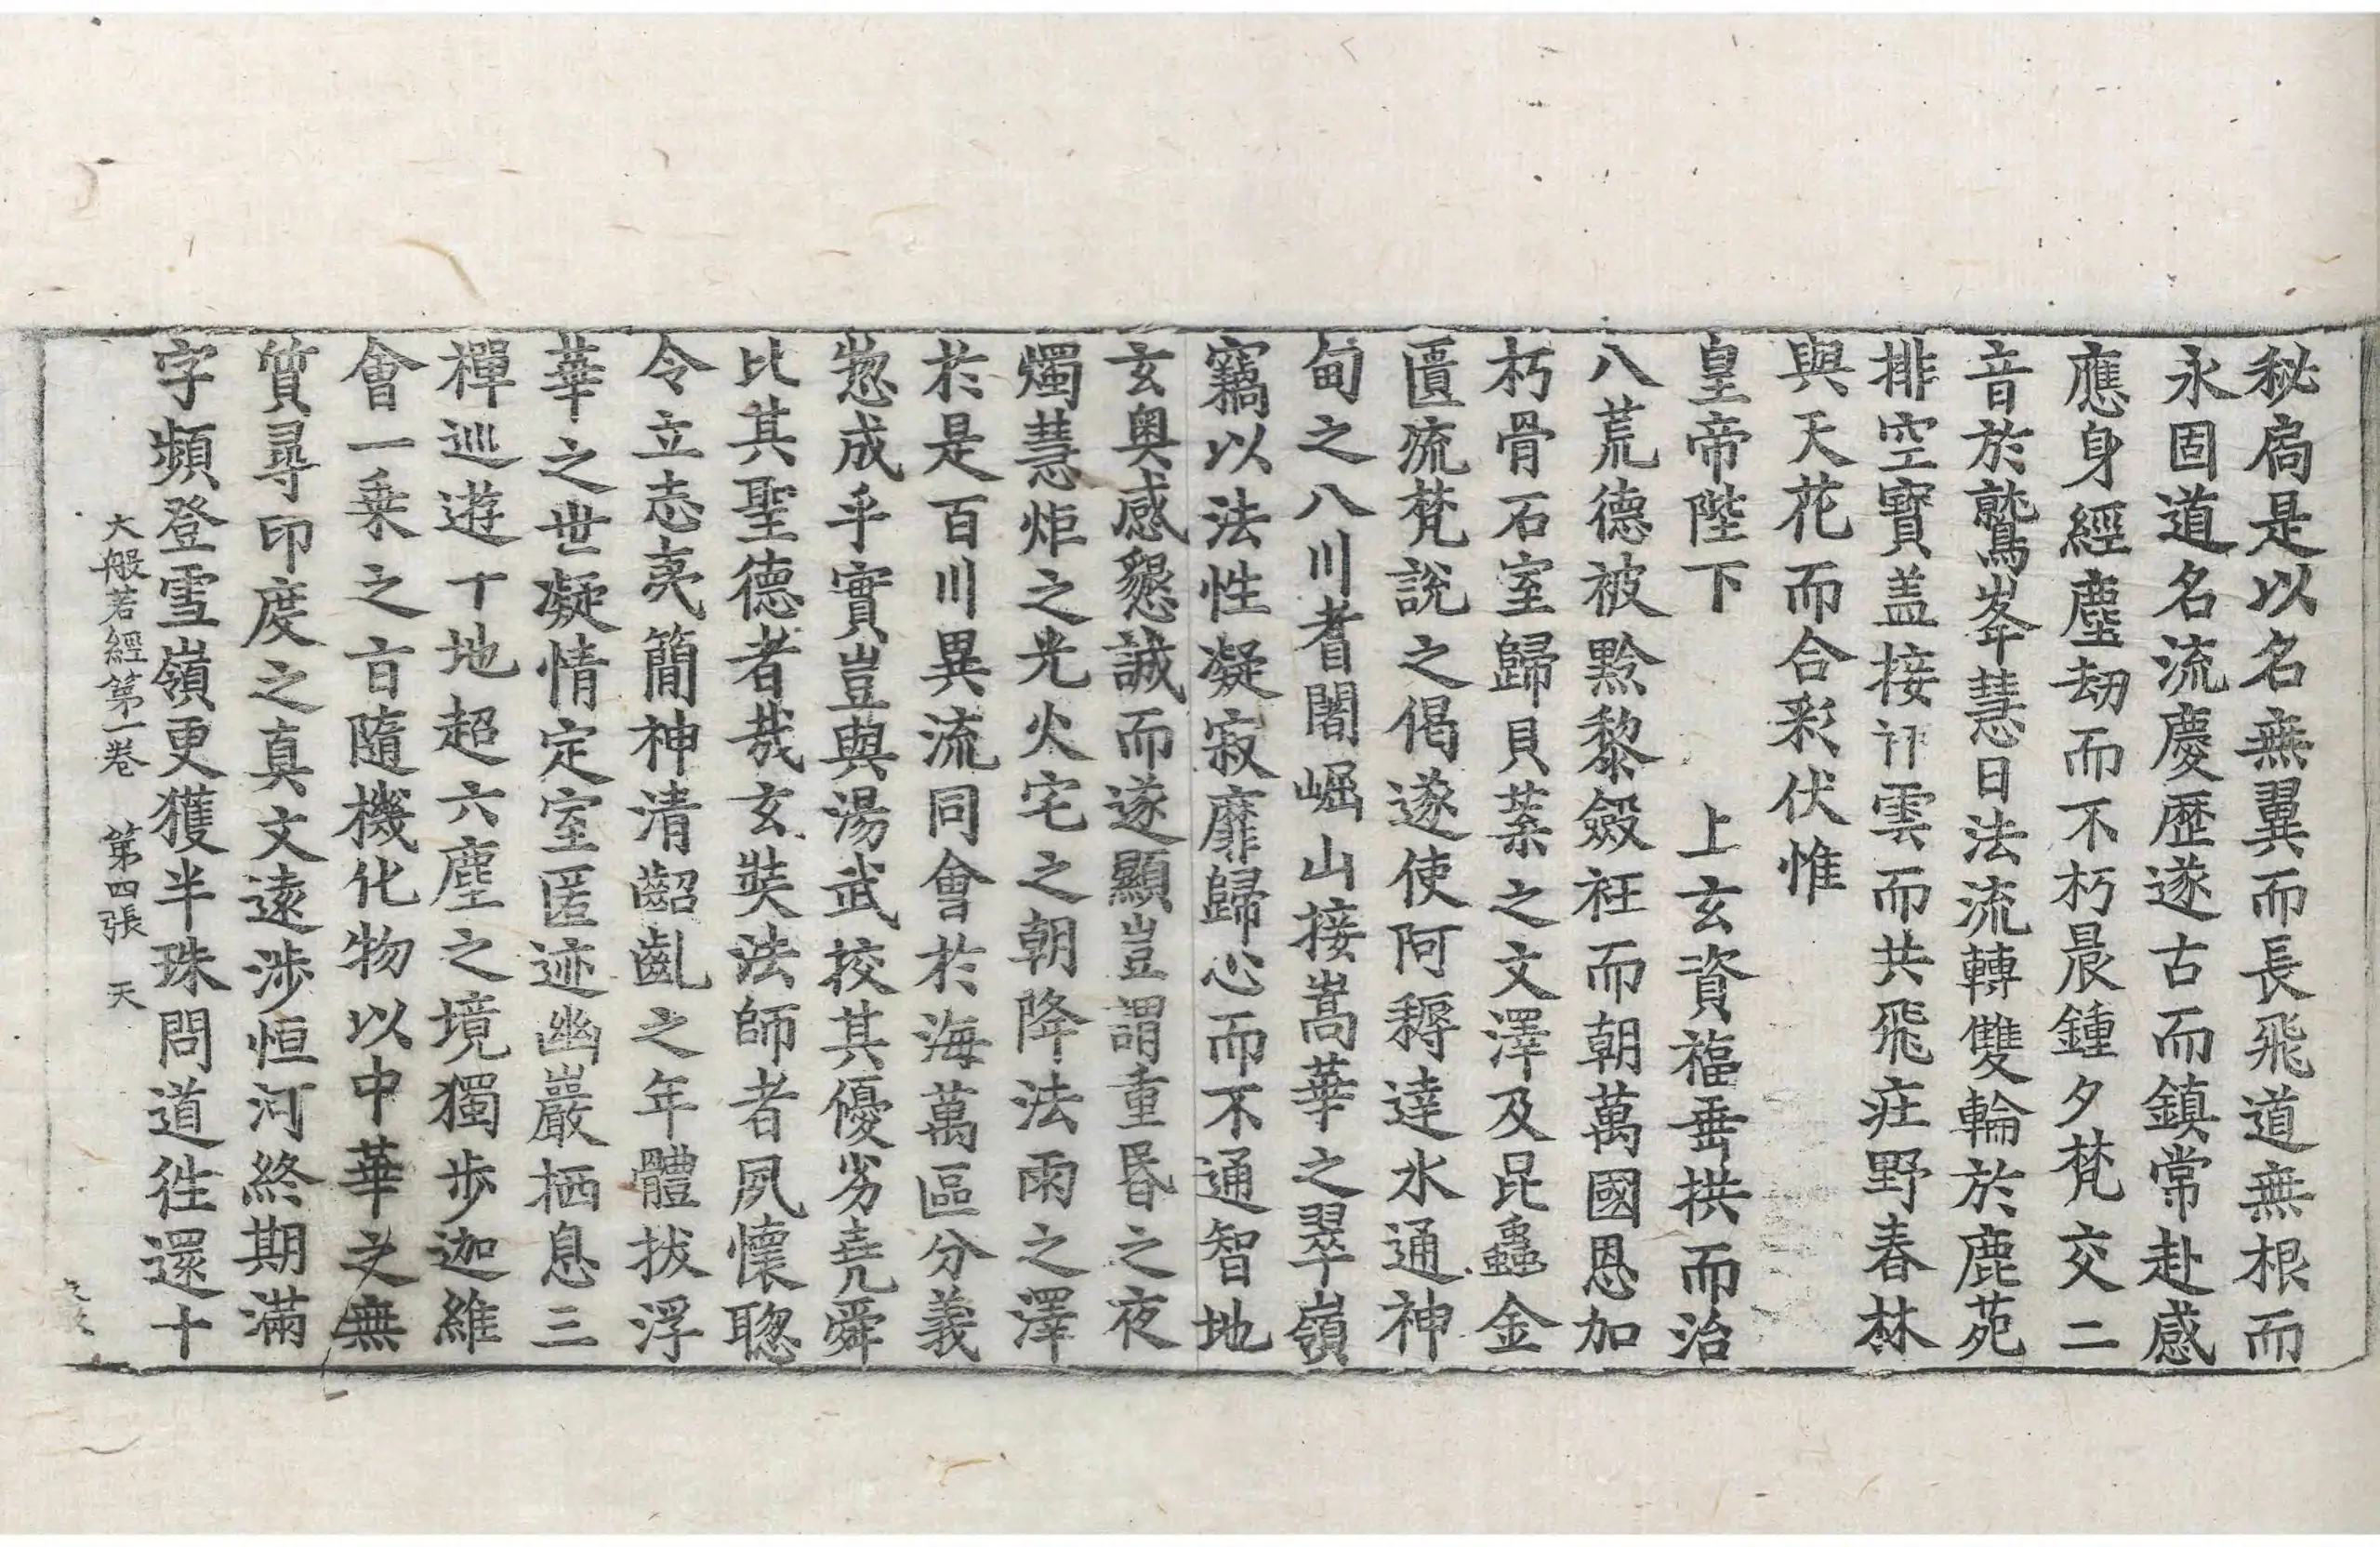 秘扄是以名無翼而長飛道無根而
永固道名流慶歷遂古而鎮常赴感
應身經塵劫而不朽晨鍾夕梵交二
音於鷲峯慧日法流轉雙輪於鹿苑
排空寶盖接翔雲而共飛疰野春林
與天花而合彩伏惟
皇帝陛下　上玄資福垂拱而治
八荒德被黔黎斂衽而朝萬國恩加
朽骨石室歸貝葉之文澤及昆蟲金
匱流梵說之偈遂使阿耨達水通神
甸之八川耆闍崛山接嵩華之翠嶺
竊以法性凝寂靡歸心而不通智地
玄奧感懇誠而遂顯豈謂重昬之夜
燭慧炬之光火宅之朝降法雨之澤
於是百川異流同會於海萬區分義
惣成乎實豈與湯武挍其優劣堯舜
比其聖德者哉玄奘法師者夙懷聦
令立志夷簡神清齠齔之年體拔浮
華之世凝情定室匿迹幽巖栖息三
禪巡遊十地超六塵之境獨步迦維
會一乘之旨隨機化物以中華之無
質尋印度之真文遠涉恒河終期滿
字頻登雪嶺更獲半珠問道往還十
大般若經第一卷　第四張　天